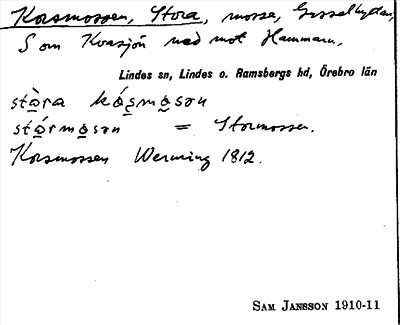 Korsmossen, Stora, mosse, Gusselbyttan,
S om Kvasjön ned mot Hammarn.
Lindes sn, Lindes o. Ramsbergs hd, Örebro län
stòra kósmosən
stórmosən = Stormossen.
Korsmossen Werming 1812.
SAM JANSSON 1910-11